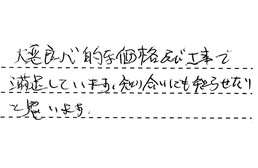 大変良心的な価格及び工事で
満足しています。知り合いにも知らせたい
と思います。